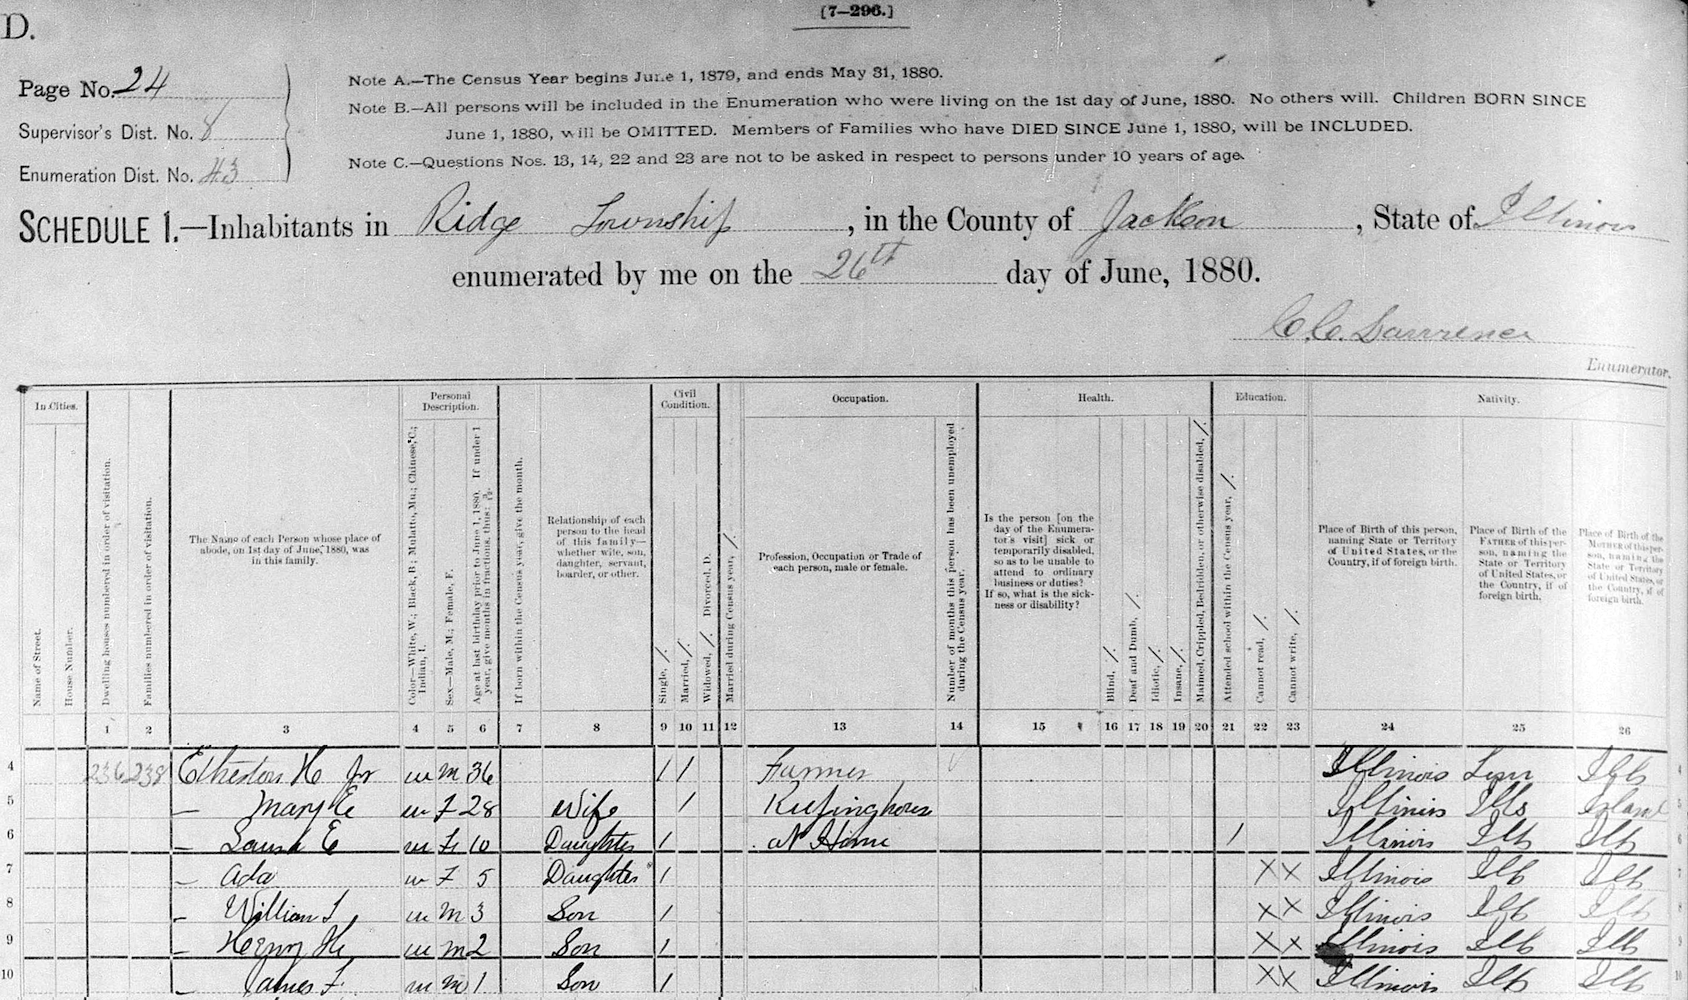 [7—296.]
D.
Page No. 24
Supervisor's Dist. No. 8
Enumeration Dist. No. 43
Note A.—The Census Year begins June 1, 1879, and ends May 31, 1880.
Note B.—All persons will be included in the Enumeration who were living on the 1st day of June, 1880. No others will. Children BORN SINCE
June 1, 1880, will be OMITTED. Members of Families who have DIED SINCE June 1, 1880, will be INCLUDED.
Note C.—Questions Nos. 13, 14, 22 and 23 are not to be asked in respect to persons under 10 years of age.
SCHEDULE 1.—Inhabitants in Ridge Township, in the County of Jackson, State of Illinois
enumerated by me on the 26th day of June, 1880.
C. C. Lawrence
Enumerator.
In Cities.
Personal
Description.
Civil
Condition.
Occupation.
Health.
Education.
Nativity.
Name of Street.
House Number.
Dwelling houses numbered in order of visitation.
Families numbered in order of visitation.
The Name of each Person whose place of
abode, on 1st day of June, 1880, was
in this family.
Color—White, W.; Black, B.; Mulatto, Mu.; Chinese, C.;
Indian, I.
Sex—Male, M.; Female, F.
Age at last birthday prior to June 1, 1880. If under 1
year, give months in fractions, thus: 3/12.
If born within the Census year, give the month.
Relationship of each
person to the head
of this family—
whether wife, son,
daughter, servant,
boarder, or other.
Single, /.
Married, /.
Widowed, /. Divorced, D.
Married during Census year, /.
Profession, Occupation or Trade of
each person, male or female.
Number of months this person has been unemployed
during the Census year.
Is the person [on the
day of the Enumera-
tor's visit] sick or
temporarily disabled,
so as to be unable to
attend to ordinary
business or duties?
If so, what is the sick-
ness or disability?
Blind, /.
Deaf and Dumb, /.
Idiotic, /.
Insane, /.
Maimed, Crippled, Bedridden, or otherwise disabled, /.
Attended school within the Census year, /.
Cannot read, /.
Cannot write, /.
Place of Birth of this person,
naming State or Territory
of United States, or the
Country, if of foreign birth.
Place of Birth of the
FATHER of this per-
son, naming the
State or Territory
of United States, or
the Country, if of
foreign birth.
Place of Birth of the
MOTHER of this per-
son, naming the
State or Territory
of United States, or
the Country, if of
foreign birth.
1 2 3 4 5 6 7 8 9 10 11 12 13 14 15 16 17 18 19 20 21 22 23 24 25 26
4 236 238 Etherton H Jr W M 36 / / Farmer Illinois Tenn Ills 4
5 — Mary E W F 28 Wife / Keeping house Illinois Ills 5
6 — Laura E W F 10 Daughter / At Home / Illinois Ills Ills 6
7 — Ada W F 5 Daughter / X X Illinois Ills Ills 7
8 — William W M 3 Son / X X Illinois Ills Ills 8
9 — Henry W M 2 Son / X X Illinois Ills Ills 9
10 — James F W M 1 Son / X X Illinois Ills Ills 10